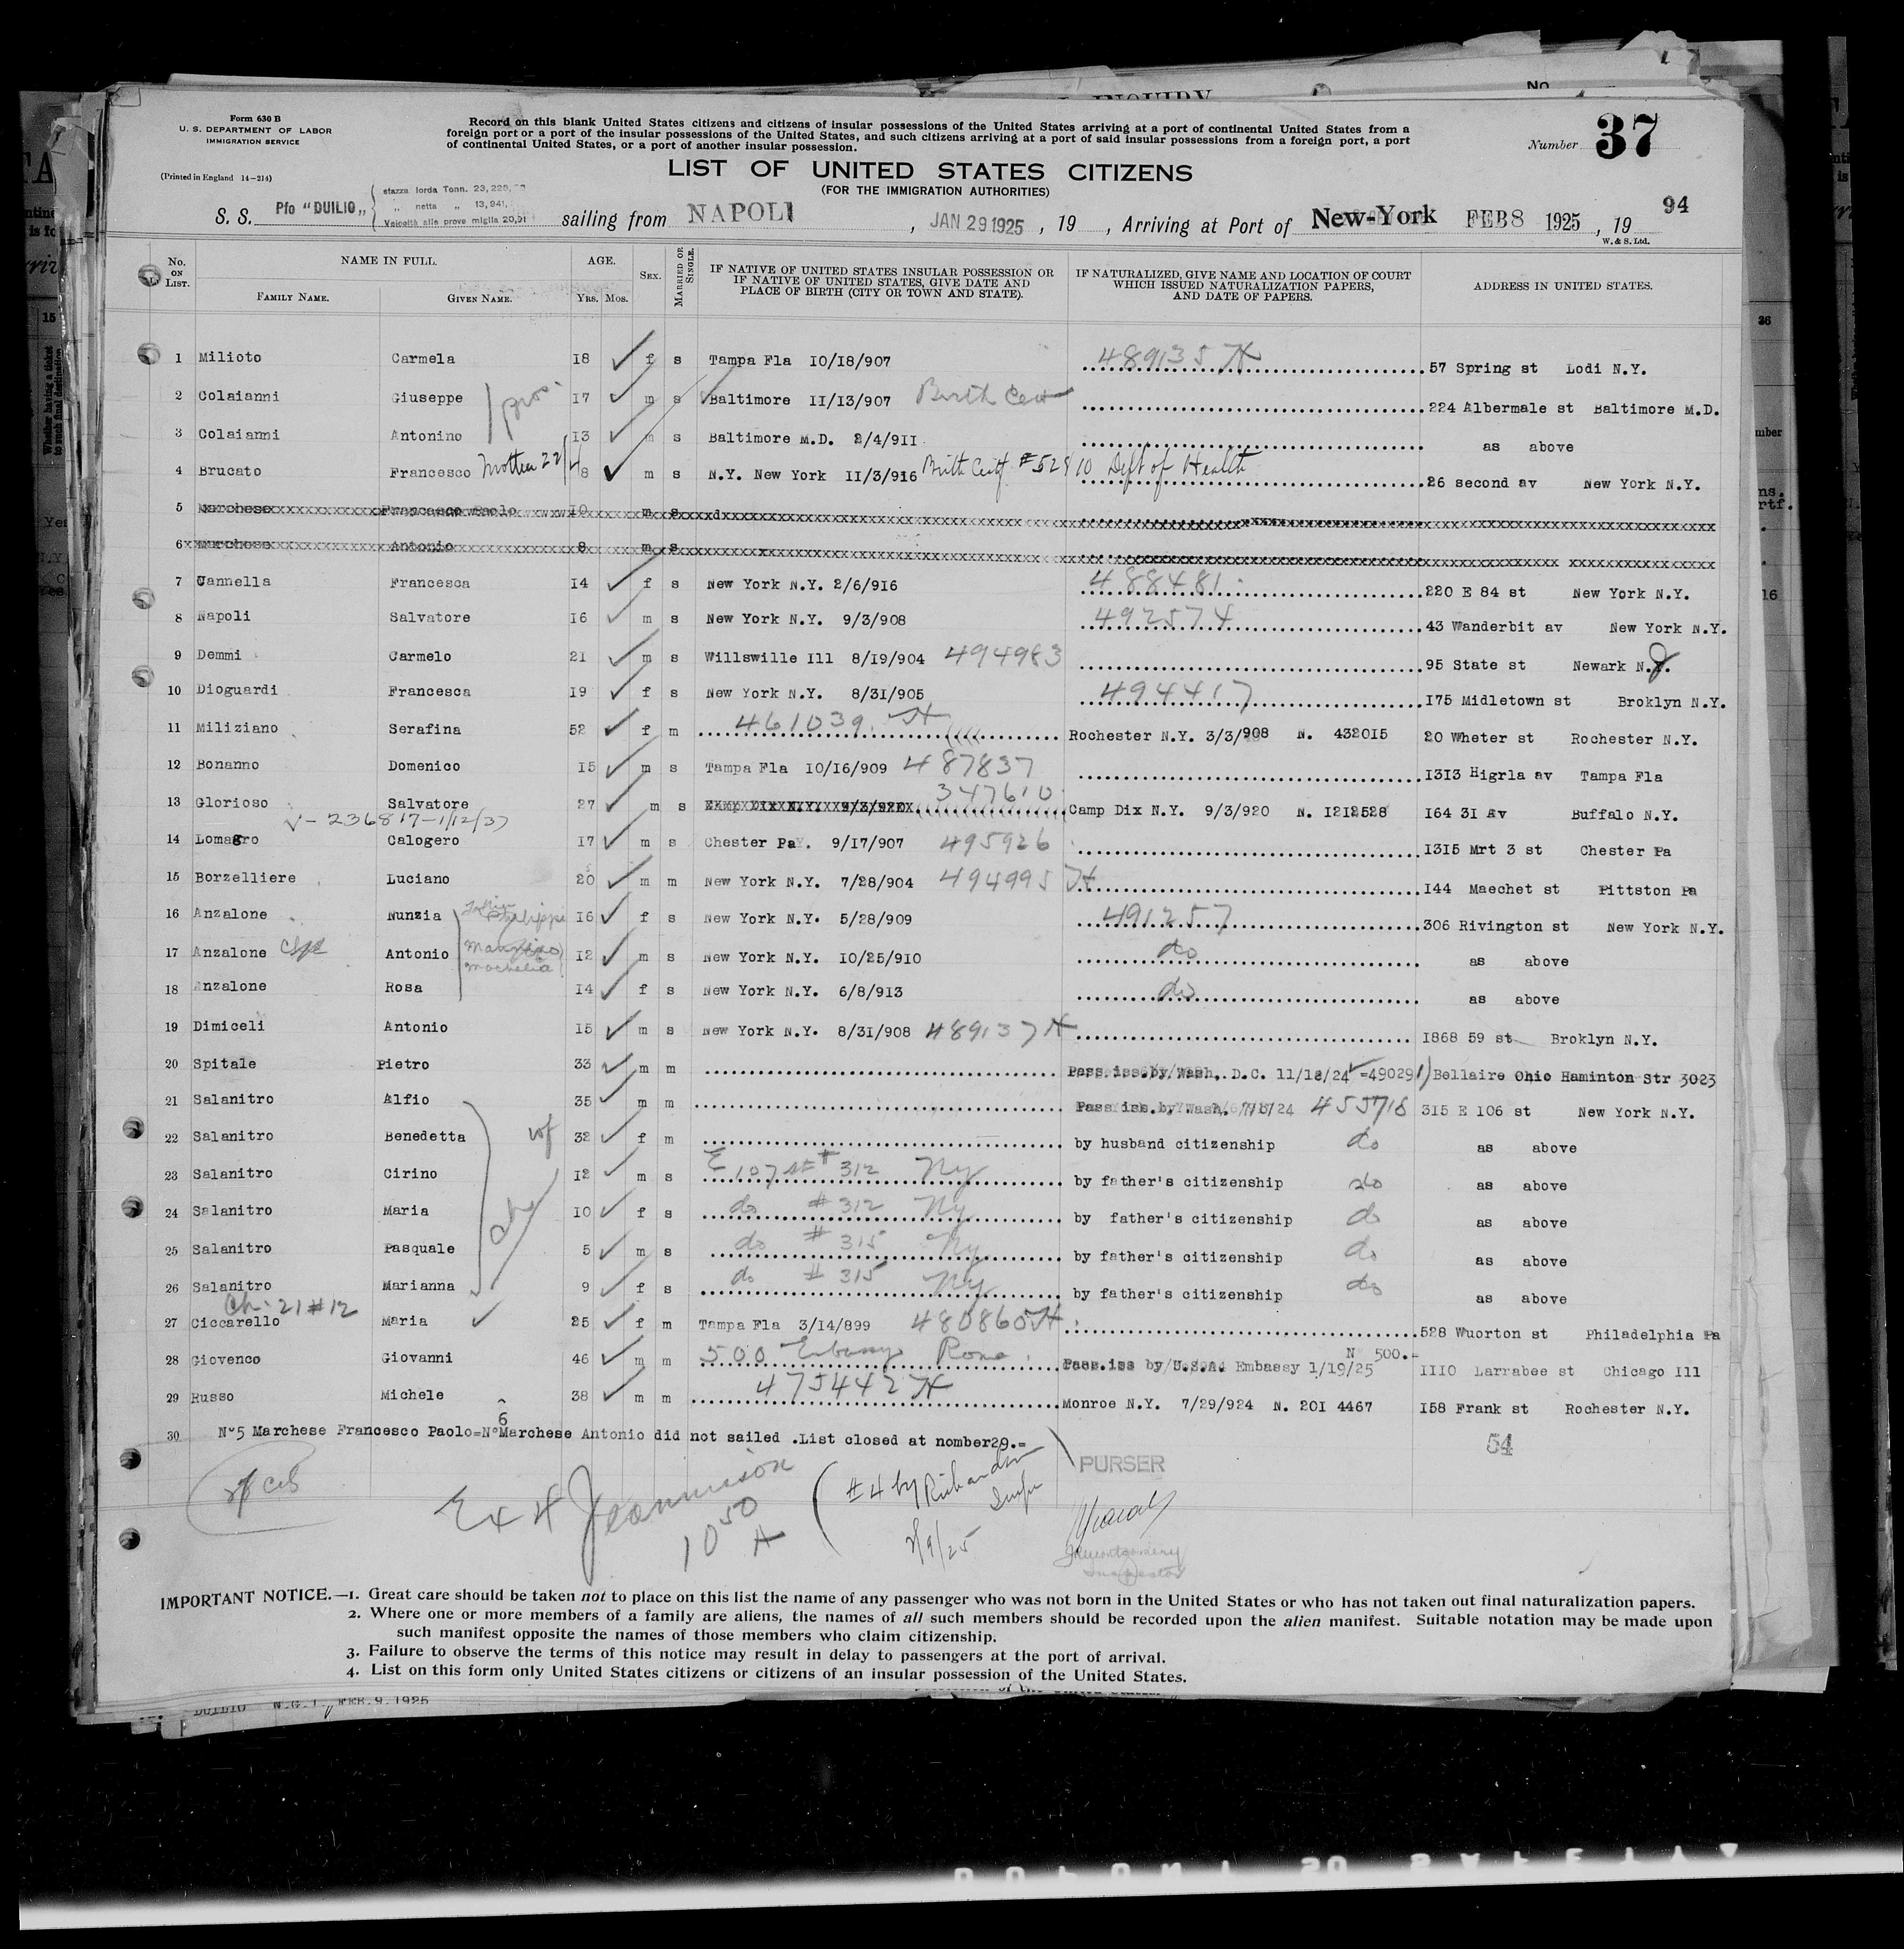 Form 630 B
U. S. DEPARTMENT OF LABOR
IMMIGRATION SERVICE
(Printed in England 14-214)
Record on this blank United States citizens and citizens of insular possessions of the United States arriving at a port of continental United States from a
foreign port or a port of the insular possessions of the United States, and such citizens arriving at a port of said insular possessions from a foreign port, a port
of continental United States, or a port of another insular possession.
Number 37
LIST OF UNITED STATES CITIZENS
(FOR THE IMMIGRATION AUTHORITIES)
94
S. S. Pfo "DUILIO" stazza lorda Tonn. 23,228,
" netta " 13,941,
Velocità alle prove miglia 20,91
sailing from NAPOLI , JAN 29 1925 , 19 , Arriving at Port of New-York FEB 8 1925 , 19
W. & S. Ltd.
No. ON LIST. NAME IN FULL. FAMILY NAME. GIVEN NAME. AGE. Yrs. Mos. SEX. MARRIED OR SINGLE. IF NATIVE OF UNITED STATES INSULAR POSSESSION OR IF NATIVE OF UNITED STATES, GIVE DATE AND PLACE OF BIRTH (CITY OR TOWN AND STATE). IF NATURALIZED, GIVE NAME AND LOCATION OF COURT WHICH ISSUED NATURALIZATION PAPERS, AND DATE OF PAPERS. ADDRESS IN UNITED STATES.
1 Milioto Carmela 18 f s Tampa Fla 10/18/907 489135 57 Spring st Lodi N.Y.
2 Colaianni Giuseppe 17 m s Baltimore 11/13/907 Birth Cert 224 Albermale st Baltimore M.D.
3 Colaianni Antonino 13 m s Baltimore M.D. 2/4/911 as above
4 Brucato Francesco Mother 22/4 8 m s N.Y. New York 11/3/916 Birth Certf #52410 Dept of Health 26 second av New York N.Y.
5 Marchese Francesco Paolo 10 m s
6 Marchese Antonio 8 m s
7 Cannella Francesca 14 f s New York N.Y. 2/6/916 488481 220 E 84 st New York N.Y.
8 Napoli Salvatore 16 m s New York N.Y. 9/3/908 492574 43 Wanderbit av New York N.Y.
9 Demmi Carmelo 21 m s Willswille Ill 8/19/904 494983 95 State st Newark N.J.
10 Dioguardi Francesca 19 f s New York N.Y. 8/31/905 494417 175 Midletown st Broklyn N.Y.
11 Miliziano Serafina 52 f m 461039 Rochester N.Y. 3/3/908 N. 432015 20 Wheter st Rochester N.Y.
12 Bonanno Domenico 15 m s Tampa Fla 10/16/909 487837 1313 Higrla av Tampa Fla
13 Glorioso Salvatore 27 m s 347610 Camp Dix N.Y. 9/3/920 N. 1212528 164 31 Av Buffalo N.Y.
V- 236817-1/12/37
14 Lomagro Calogero 17 m s Chester Pa. 9/17/907 495926 1315 Mrt 3 st Chester Pa
15 Borzelliere Luciano 20 m m New York N.Y. 7/28/904 494995 144 Maechet st Pittston Pa
16 Anzalone Nunzia 16 f s New York N.Y. 5/28/909 491257 306 Rivington st New York N.Y.
17 Anzalone Antonio 12 m s New York N.Y. 10/25/910 do as above
18 Anzalone Rosa 14 f s New York N.Y. 6/8/913 do as above
19 Dimiceli Antonio 15 m s New York N.Y. 8/31/908 489137 1868 59 st Broklyn N.Y.
20 Spitale Pietro 33 m m Pass.iss.by.Wash. D.C. 11/12/24=490291 Bellaire Ohio Haminton Str 3023
21 Salanitro Alfio 35 m m Pass iss.by Wash. 7/1/24 455718 315 E 106 st New York N.Y.
22 Salanitro Benedetta wf 32 f m by husband citizenship do as above
23 Salanitro Cirino 12 m s E 107 st # 312 Ny by father's citizenship do as above
24 Salanitro Maria 10 f s do # 312 Ny by father's citizenship do as above
25 Salanitro Pasquale 5 m s do # 315 Ny by father's citizenship do as above
26 Salanitro Marianna 9 f s do # 315 Ny by father's citizenship do as above
Ch. 21 #12
27 Ciccarello Maria 25 f m Tampa Fla 3/14/899 480860 528 Wuorton st Philadelphia Pa
28 Giovenco Giovanni 46 m m 500 Embassy Rome Pass.iss by U.S.A. Embassy 1/19/25 N 500.- 1110 Larrabee st Chicago Ill
29 Russo Michele 38 m m 475442 Monroe N.Y. 7/29/924 N. 201 4467 158 Frank st Rochester N.Y.
30 N°5 Marchese Francesco Paolo=N°6 Marchese Antonio did not sailed .List closed at nomber29.=
54
PURSER
#4 by Richardson
Inspr
2/9/25
Ex # Jeannison
10 50 A
Inspector
IMPORTANT NOTICE.—1. Great care should be taken not to place on this list the name of any passenger who was not born in the United States or who has not taken out final naturalization papers.
2. Where one or more members of a family are aliens, the names of all such members should be recorded upon the alien manifest. Suitable notation may be made upon
such manifest opposite the names of those members who claim citizenship.
3. Failure to observe the terms of this notice may result in delay to passengers at the port of arrival.
4. List on this form only United States citizens or citizens of an insular possession of the United States.
DUILIO W.G.I. FEB.9.1925